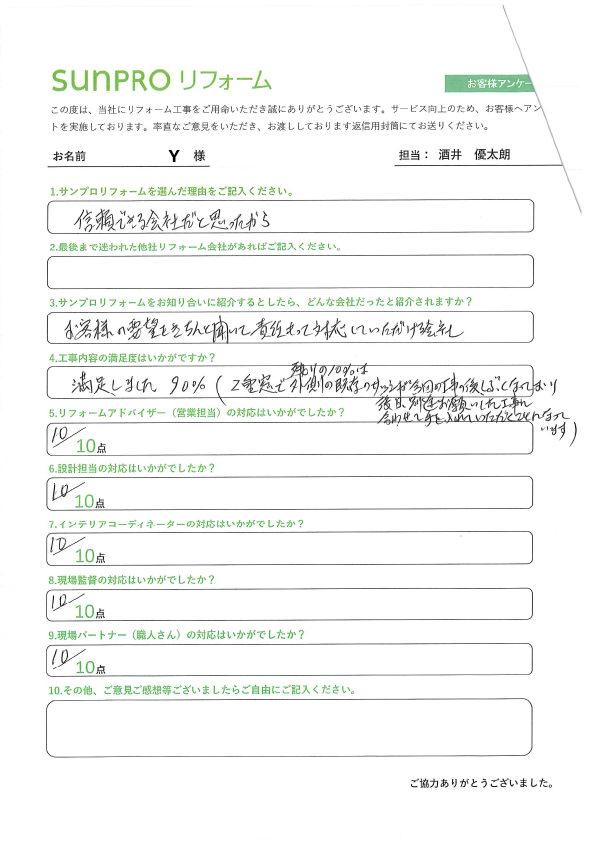 SUNPRO リフォーム
お客様アンケー
この度は、当社にリフォーム工事をご用命いただき誠にありがとうございます。サービス向上のため、お客様へアン
トを実施しております。率直なご意見をいただき、お渡ししております返信用封筒にてお送りください。
お名前 Y 様
担当： 酒井 優太朗
1.サンプロリフォームを選んだ理由をご記入ください。
信頼できる会社だと思ったから
2.最後まで迷われた他社リフォーム会社があればご記入ください。
3.サンプロリフォームをお知り合いに紹介するとしたら、どんな会社だったと紹介されますか？
お客様の要望をきちんと聞いて責任もって対応していただける会社
4.工事内容の満足度はいかがですか？
残りの10%は
満足しました 90% (2重窓で外側の既存のサッシが今回の工事の後しぶくなってしまい
後日、別途お願いした工事に
合わせて手を入れていただくことになって
います)
5.リフォームアドバイザー（営業担当）の対応はいかがでしたか？
10/10点
6.設計担当の対応はいかがでしたか？
10/10点
7.インテリアコーディネーターの対応はいかがでしたか？
10/10点
8.現場監督の対応はいかがでしたか？
10/10点
9.現場パートナー（職人さん）の対応はいかがでしたか？
10/10点
10.その他、ご意見ご感想等ございましたらご自由にご記入ください。
ご協力ありがとうございました。